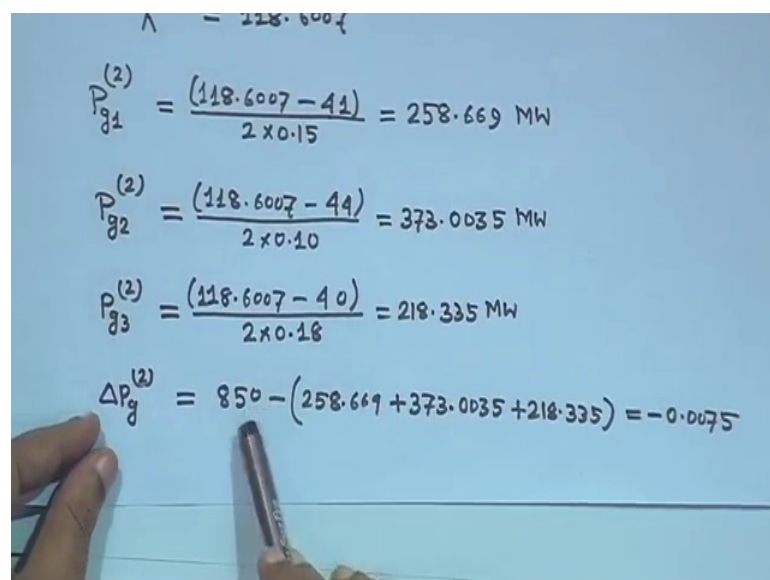 λ = 118.6007
P_g1^(2) = (118.6007 - 41) / 2×0.15 = 258.669 MW
P_g2^(2) = (118.6007 - 44) / 2×0.10 = 373.0035 MW
P_g3^(2) = (118.6007 - 40) / 2×0.18 = 218.335 MW
ΔP_g^(2) = 850 - (258.669 + 373.0035 + 218.335) = -0.0075